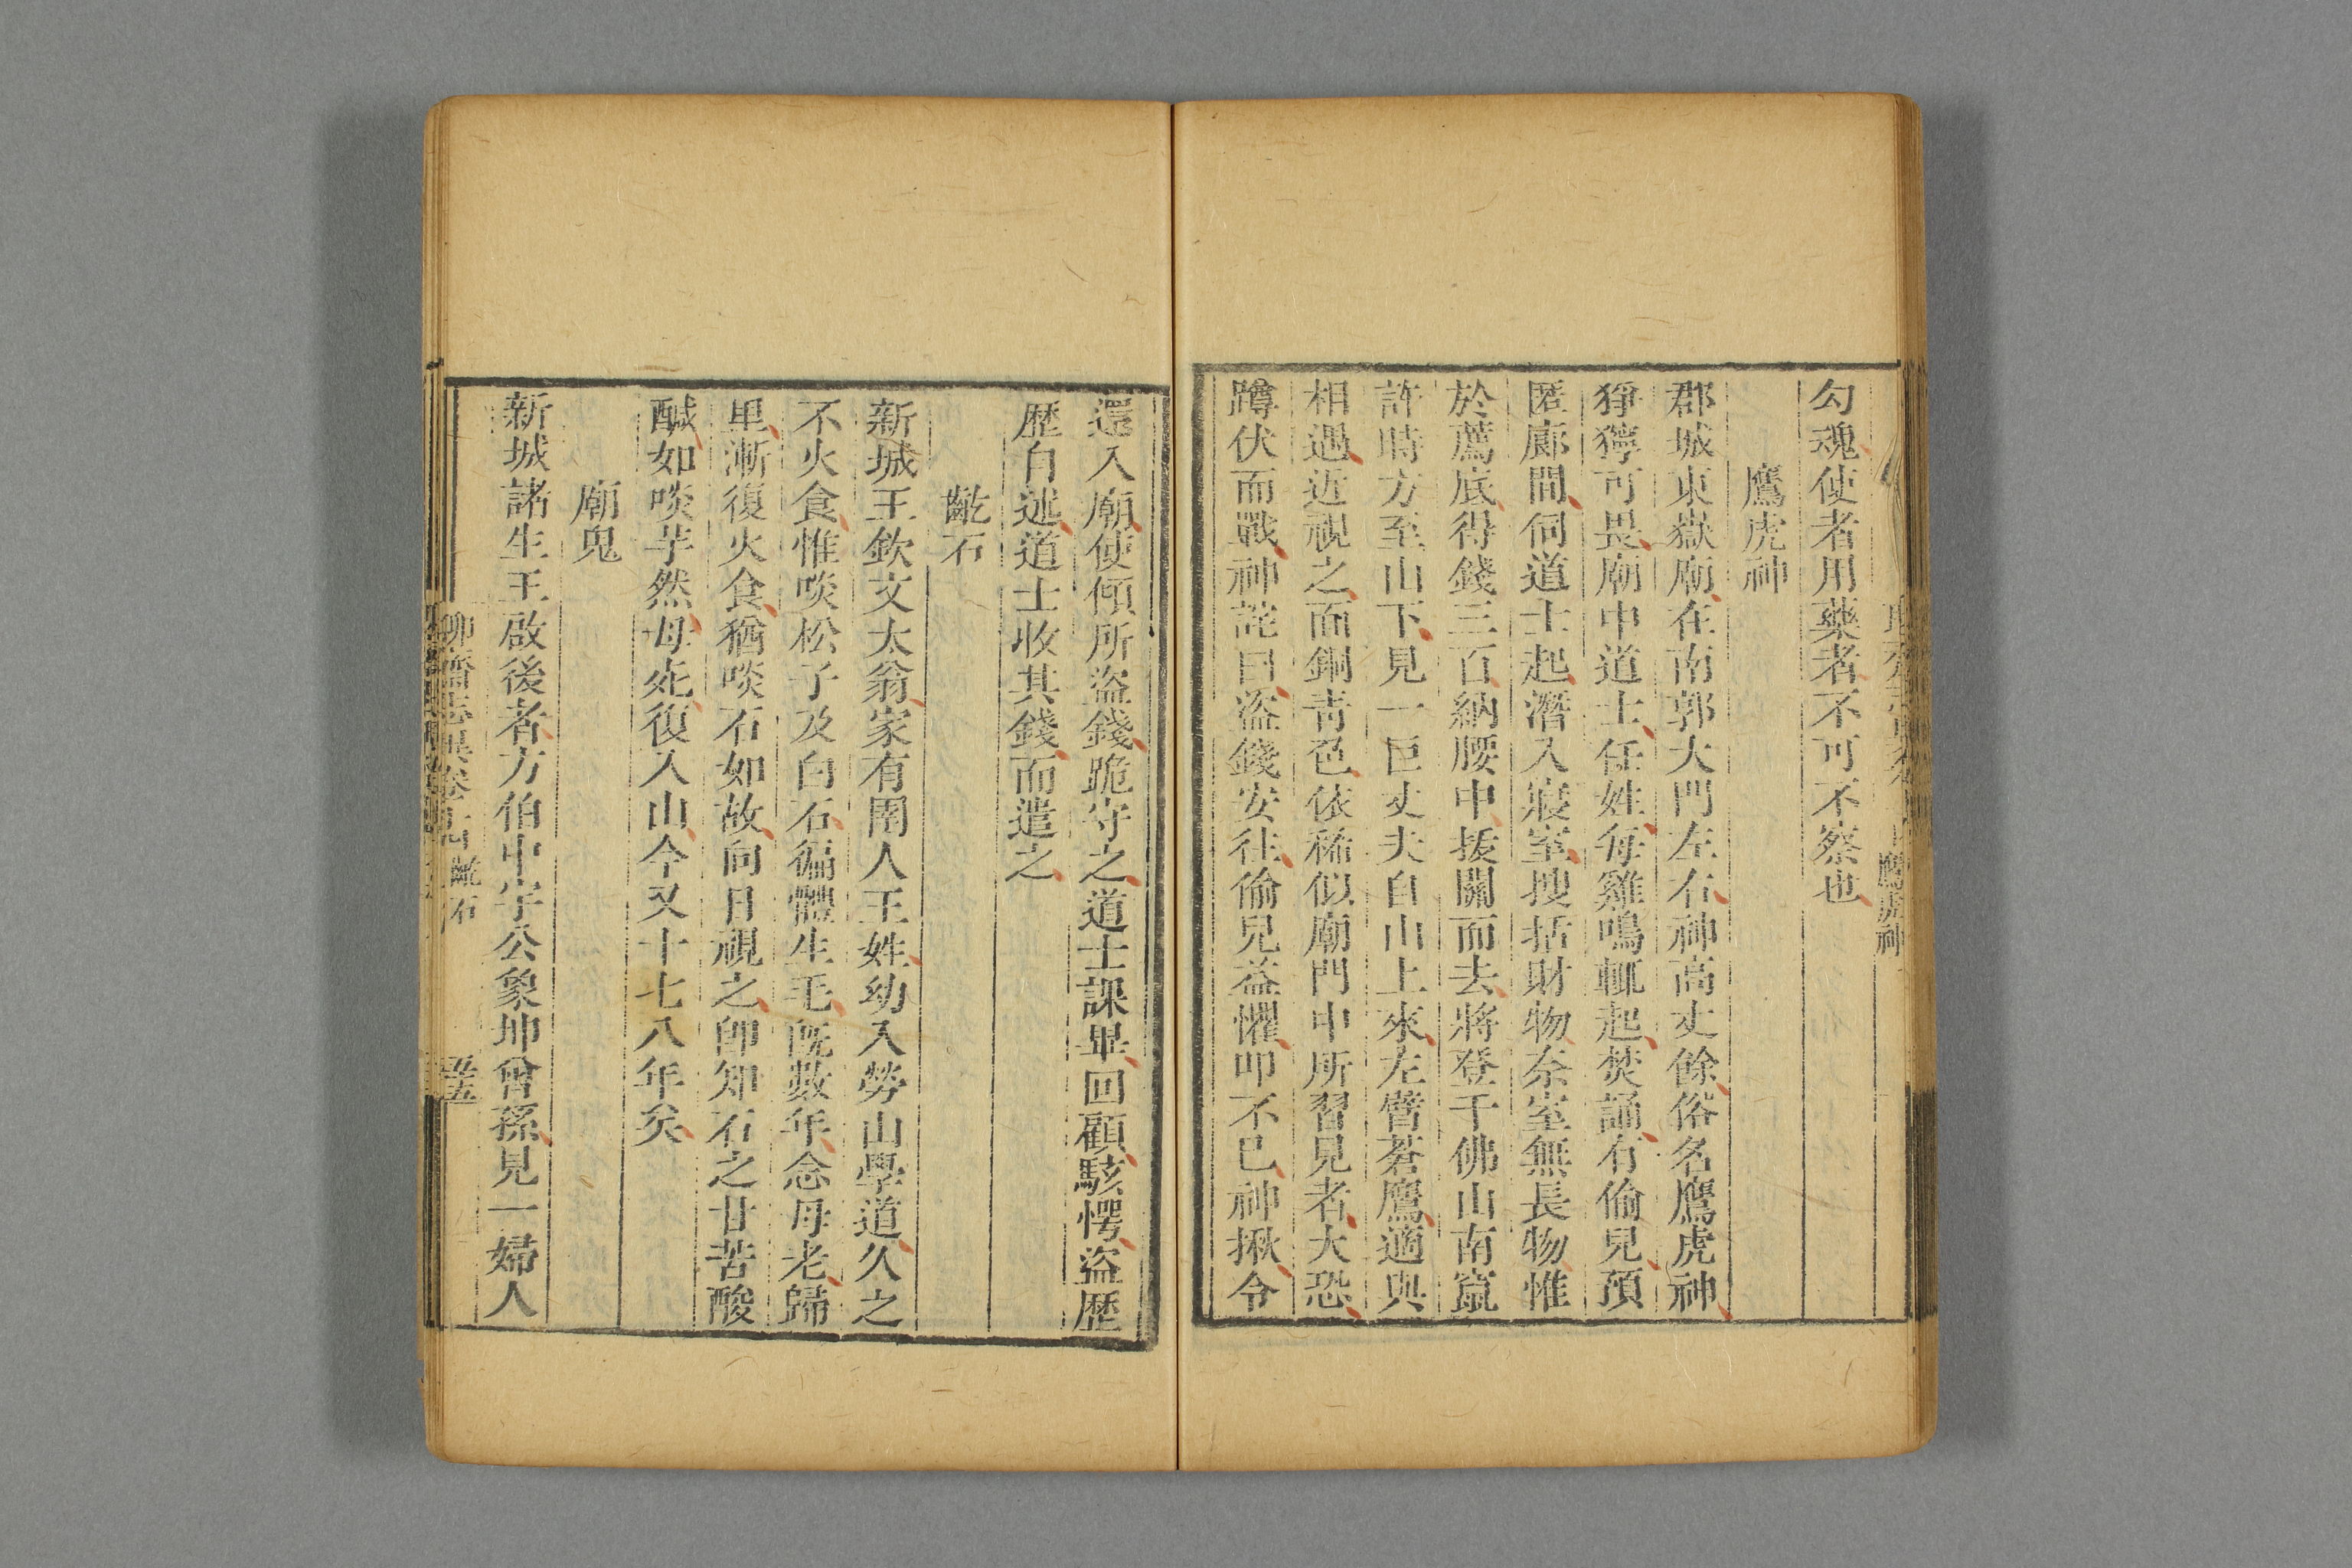 勾魂使者用藥者不可不察也
鷹虎神
郡城東嶽廟在南郭大門左右神高丈餘俗名鷹虎神
猙獰可畏廟中道士任姓每雞鳴輒起焚誦有偷兒預
匿廊間伺道士起潛入寢室搜括財物奈室無長物惟
於薦底得錢三百納腰中拔關而去將登千佛山南竄
許時方至山下見一巨丈夫自山上來左臂蒼鷹適與
相遇近視之面銅青色依稀似廟門中所習見者大恐
蹲伏而戰神詫曰盜錢安往偷兒益懼叩不已神揪令
還入廟使傾所盜錢跪守之道士課畢回顧駭愕盜歷
歷自述道士收其錢而遣之
齕石
新城王欽文太翁家有圉人王姓幼入勞山學道久之
不火食惟啖松子及白石徧體生毛既數年念母老歸
里漸復火食猶啖石如故向日視之即知石之甘苦酸
醎如啖芋然母死復入山今又十七八年矣
廟鬼
新城諸生王啟後者方伯中宇公象坤曾孫見一婦人
鷹虎神
齕石